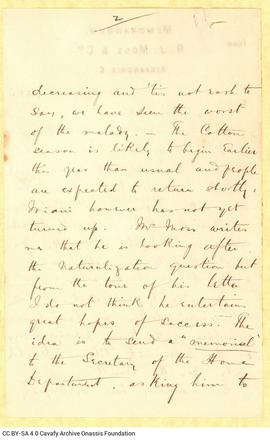 2
MEMORANDUM
FROM
R. J. MOSS & Co
ALEXANDRIA
decreasing and 'tis not rash to
say, we have seen the worst
of the malady. — The Cotton
season is likely to begin Earlier
this year than usual and people
are expected to return shortly.
however has not yet
turned up. Mr Moss writes
me that he is looking after
the naturalization question but
from the tone of his letter
I do not think he entertains
great hopes of success. The
idea is to send a "memorial"
to the Secretary of the Home
Department, asking him to
CC BY-SA 4.0 Cavafy Archive Onassis Foundation